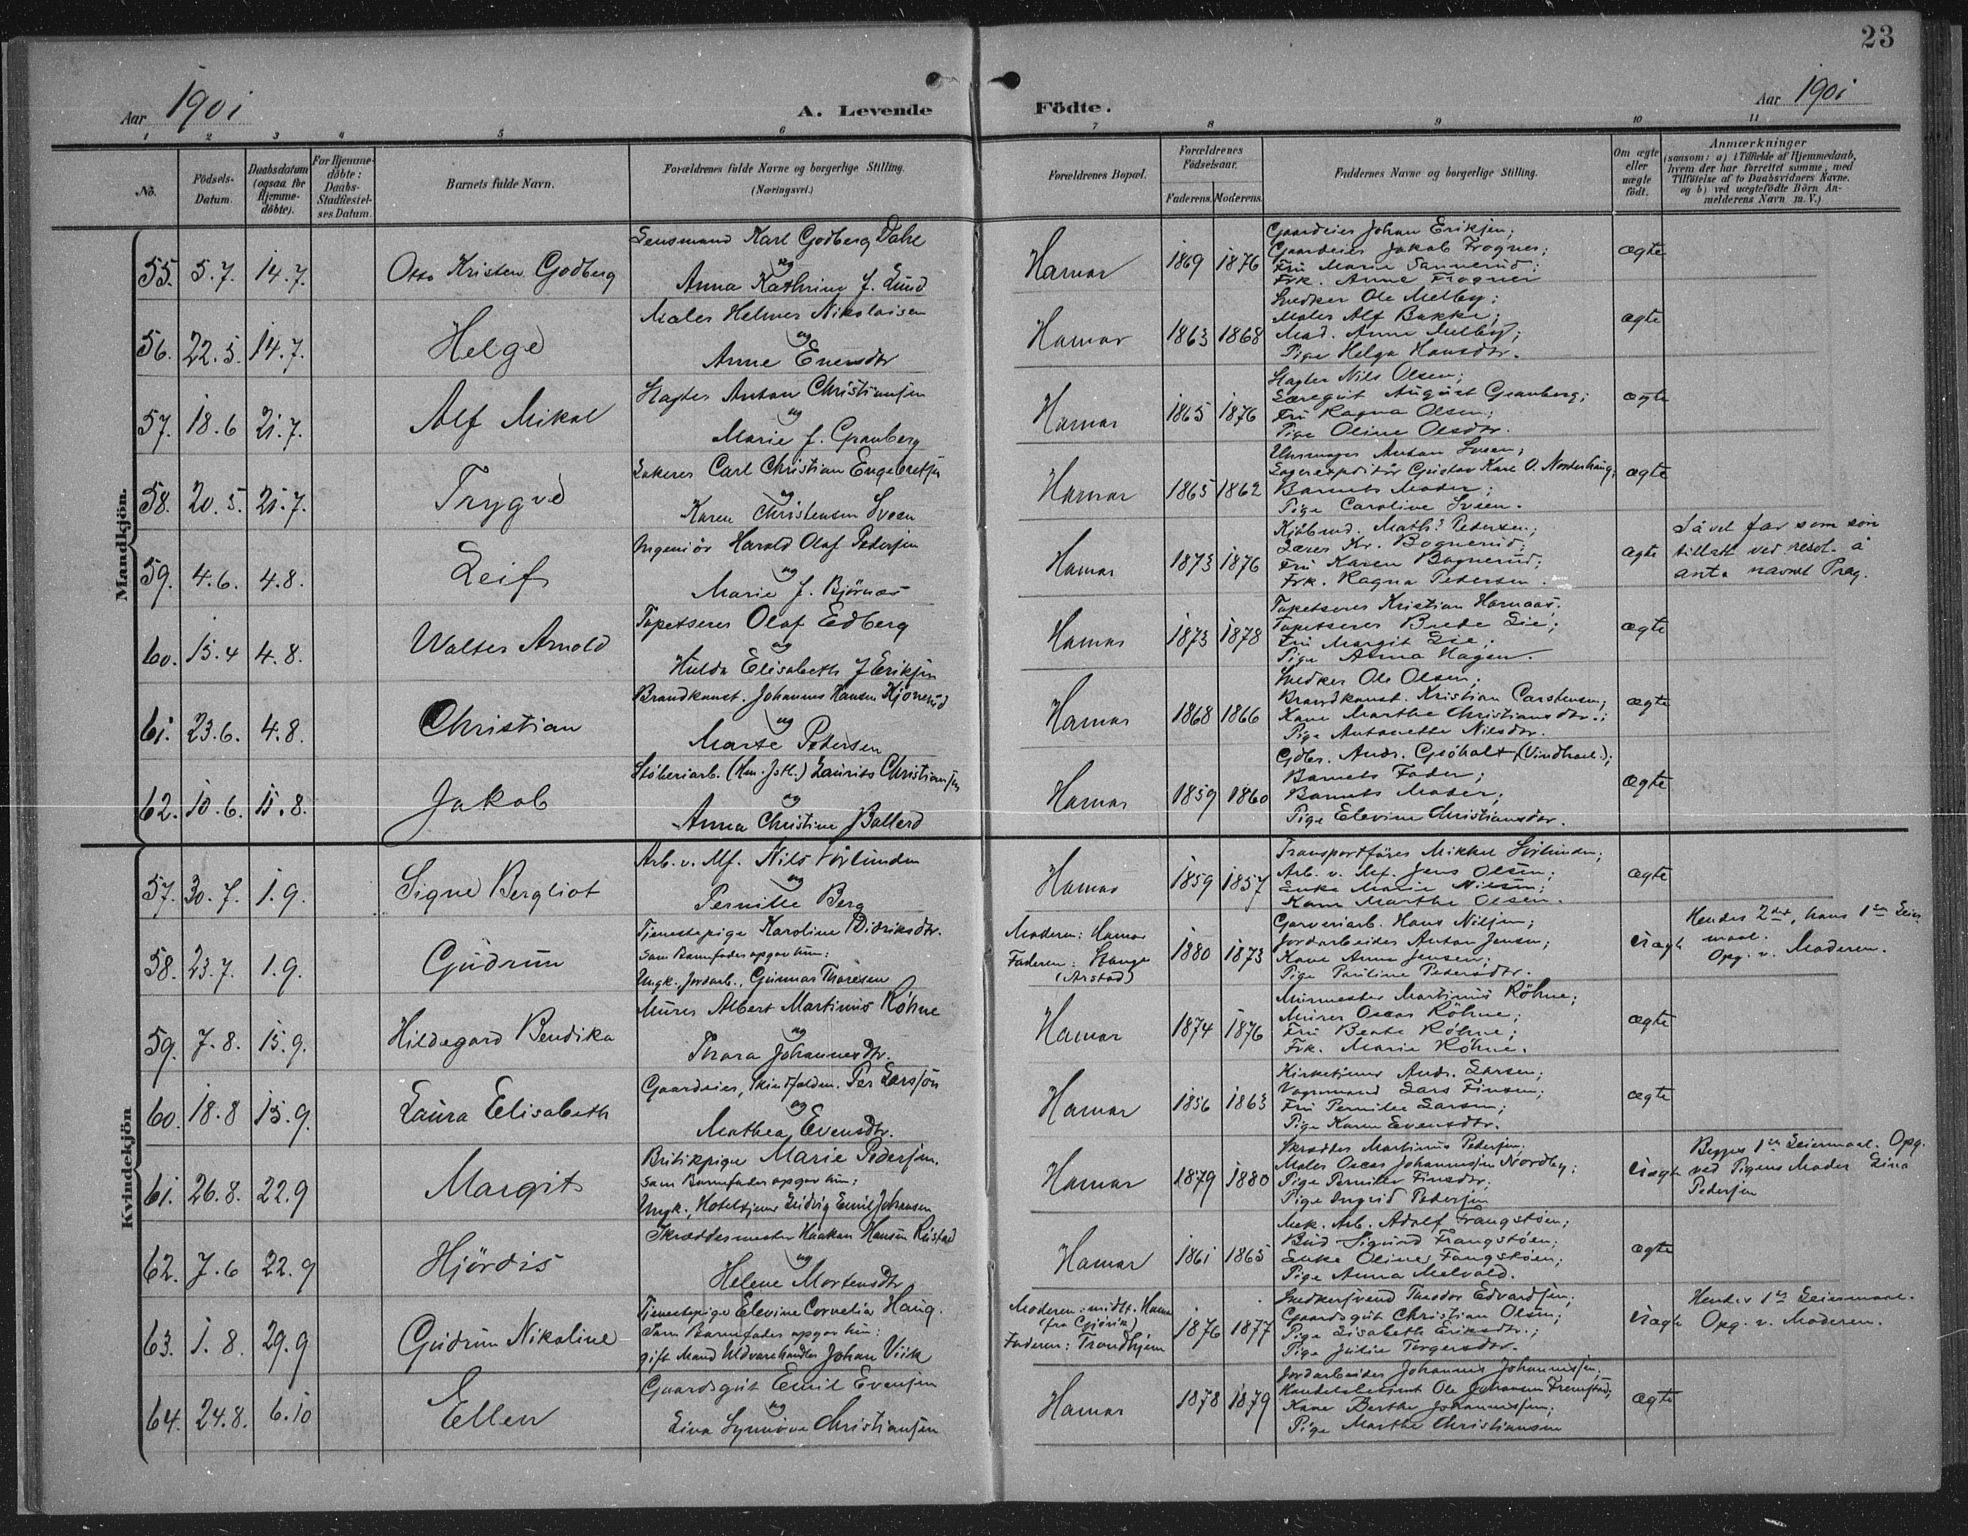 23
Aar 1901
A. Levende
Födte.
Aar 1901
1 2 3 4 5 6 7 8 9 10 11
No.
Födsels-Datum.
Daabsdatum (ogsaa for Hjemme-döbte).
For Hjemme-döbte: Daabs-Stadfæstel-ses Datum.
Barnets fulde Navn.
Forældrenes fulde Navne og borgerlige Stilling. (Næringsvei.)
Forældrenes Bopæl.
Forældrenes Födselsaar.
Faderens. Moderens.
Faddernes Navne og borgerlige Stilling.
Om ægte eller uægte födt.
Anmærkninger
(saasom: a) i Tilfælde af Hjemmedaab, hvem der har forrettet samme, med Tilföielse af to Daabsvidners Navne, og b) ved uægtefödte Börn An-melderens Navn m. V.)
Mandkjön.
55. 5.7. 14.7. Otto Kristen Godberg
Lensmand Karl Godberg Dahl
og
Anna Kathrine J. Lund
Hamar 1869 1876
Gaardeier Johan Eriksen;
Gaardeier Jakob Frogner;
Fru Marie Sannerud;
Frk. Anne Frogner
ægte
56. 22.5. 14.7. Helge
Maler Helmer Nikolaisen
og
Anne Evensdtr
Hamar 1863 1868
Snedker Ole Melby;
Maler Alf Bakke;
Mad. Anne Melby;
Pige Helga Hansdtr.
ægte
57. 18.6 21.7. Alf Mikal
Slagter Anton Christiansen
og
Marie J. Granberg
Hamar 1865 1876
Slagter Nils Olsen;
Læregut August Granberg;
Fru Ragna Olsen;
Pige Oline Olsdtr.
ægte
58. 20.5. 21.7. Trygve
Lakerer Carl Christian Engebretsen
og
Karen Christensen Svesen
Hamar 1865 1862
Uhrmager Anton Svesen;
Lagerexpeditör Gustav Karl O. Nordenhaug;
Barnets Moder;
Pige Caroline Svesen.
ægte
59. 4.6. 4.8. Leif
Ingeniör Harald Olaf Pedersen
og
Marie J. Bjørnaas
Hamar 1873 1876
Kjøbmd. Maths. Pedersen;
Lærer Kr. Bognerud;
Fru Karen Bognerud;
Frk. Ragna Pedersen.
ægte
Såvel far som søn
tillatt ved resol. å
anta navnet Prag.
60. 15.4 4.8. Walter Arnold
Tapetserer Olaf Edberg
og
Hulda Elisabeth J. Eriksen
Hamar 1873 1878
Tapetserer Kristian Hornaas;
Tapetserer Brede Lie;
Fru Margit Lie;
Pige Anna Hagen.
ægte
61. 23.6. 4.8. Christian
Brandkonst. Johannes Hansen Kjonerud
og
Marte Petersen
Hamar 1868 1866
Snedker Ole Olsen;
Brandkonst. Kristian Carstensen;
Kone Marthe Christiansdtr.;
Pige Antonette Nilsdtr.
ægte
62. 10.6. 11.8. Jakob
Støberiarb. Laurits Christiansen
og
Anna Christine Ballerd
Hamar 1859 1860
Gdbr. Andr. Gjøholt,
Barnets Fader;
Barnets Moder;
Pige Elevine Christiansdtr.
ægte
Kvindekjön
57. 30.7. 1.9. Signe Bergliot
Arb. v. Mf. Nils Sörlunden
og
Pernille Berg
Hamar 1859 1857
Transportförer Mikkel Sörlunden;
Arb. v. Mf. Jens Olsen;
Enke Marie Nilsen;
Kone Marthe Olsen.
ægte
58. 23.7. 1.9. Gudrun
Tjenestepige Karoline Didriksdtr.
som Barnefader opgav hun:
Ungk., Jordarb., Gunnar Thoresen
Moderen: Hamar
Faderen: Stange
(Arstad)
1880 1873
Garveriarb. Hans Nilsen;
Jordarbeider Anton Jensen;
Kone Anna Jensen;
Pige Pauline Pedersdtr.
Uægte
Hendes 2det, hans 1ste Leier
maal.
Opg. v. Moderen.
59. 7.8. 15.9. Hildegard Bendika
Murer Albert Martinius Röhne
og
Thora Johannesdtr.
Hamar 1874 1876
Murmester Martinius Röhne;
Murer Oscar Röhne;
Fru Beate Röhne;
Frk. Marie Röhne.
ægte
60. 18.8 15.9. Laura Elisabeth
Gaardeier, Per Larssön
og
Mathea Evensdtr.
Hamar 1856 1863
Kirketjener Andr. Larsen;
Vognmand Lars Finsen;
Fru Pernille Larsen;
Pige Karen Evensdtr.
ægte
61. 26.8. 22.9 Margit
Butikpige Marie Pedersen.
som Barnefader opgav hun:
Ungk., Hoteltjener Ludvig Emil Johansen
Hamar 1879 1880
Skrædder Martinius Pedersen;
Maler Oscar Johannesen Nordby;
Pige Pernille Finsdtr;
Pige Ingrid Pedersen
Uægte
Begges 1ste Leiermaal. Opg.
ved Pigens Moder Lina
Pedersen
62. 7.6 22.9 Hjördis
Skræddermester Haakon Hansen Rustad
og
Helene Mortensdtr
Hamar 1861 1865
Mek. Arb. Adolf Frangstöen;
Bud Sigurd Frangstöen;
Enke Oline Frangstöen;
Pige Anna Melvold.
ægte
63. 1.8. 29.9 Gudrun Nikoline
Tjenestepige Elevine Cornelia Haug.
Som Barnefader opgav hun:
gift Mand Uldvarehandler Johan Viik
Moderen: midlt. Hamar
(fra Gjövik)
Faderen: Trondhjem
1876 1877
Snedkersvend Theodor Edvardsen;
Gaardsgut Christian Olsen;
Pige Elisabeth Eriksdtr.;
Pige Julie Torgersdtr.
Uægte
Hendes 1ste Leiermaal.
Opg. v. Moderen.
64. 24.8. 6.10 Ellen
Gaardsgut Emil Evensen
og
Lina Synnöve Christiansen
Hamar 1878 1879
Jordarbeider Johannes Johannesen;
Handelsbetjent Ole Johansen Fremstad;
Kone Berthe Johannesen;
Pige Marthe Christiansen
ægte